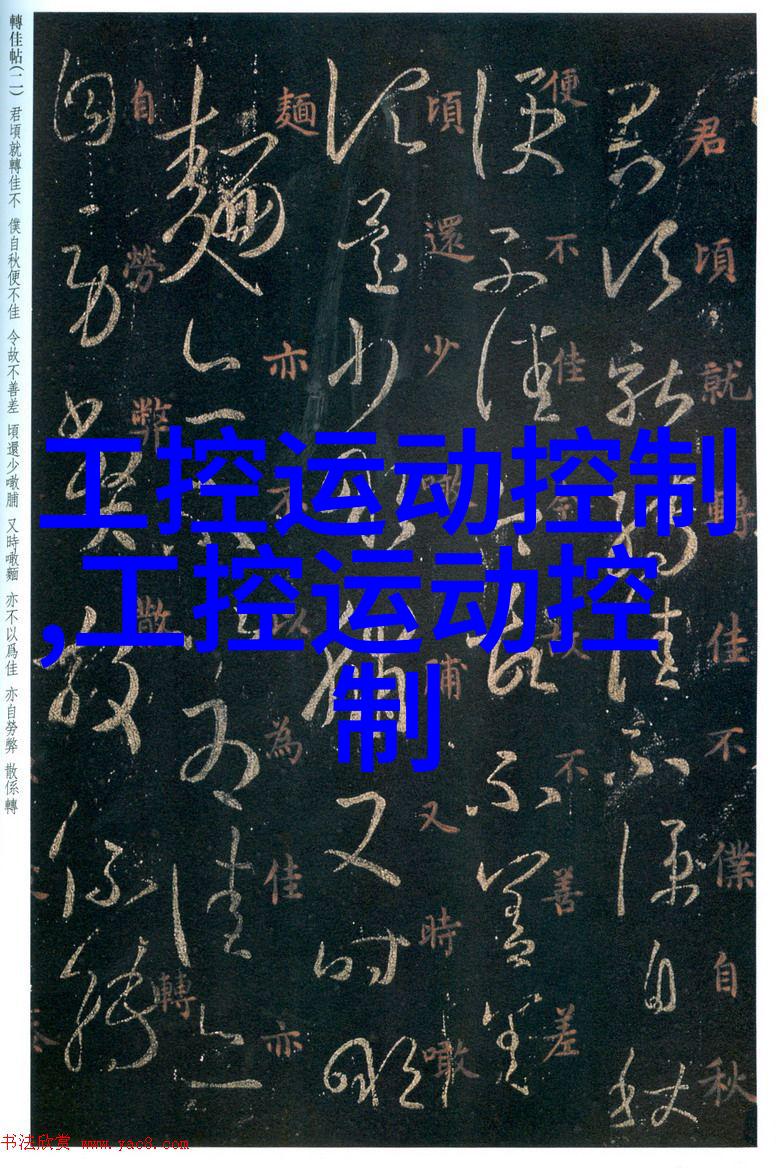 轉佳帖(二) 君頃就轉佳不 僕自秋便不佳 令故不善差 頃還少噉脯 又時噉麵 亦不以爲佳 亦自勞弊 散係轉
君頃就轉佳不僕自秋
便不佳
不善差
頃還少噉脯又時噉
麵亦不以為佳亦
自勞弊散
轉
工控运动控制
,工控运动控
制
书法欣赏 www.yac8.com